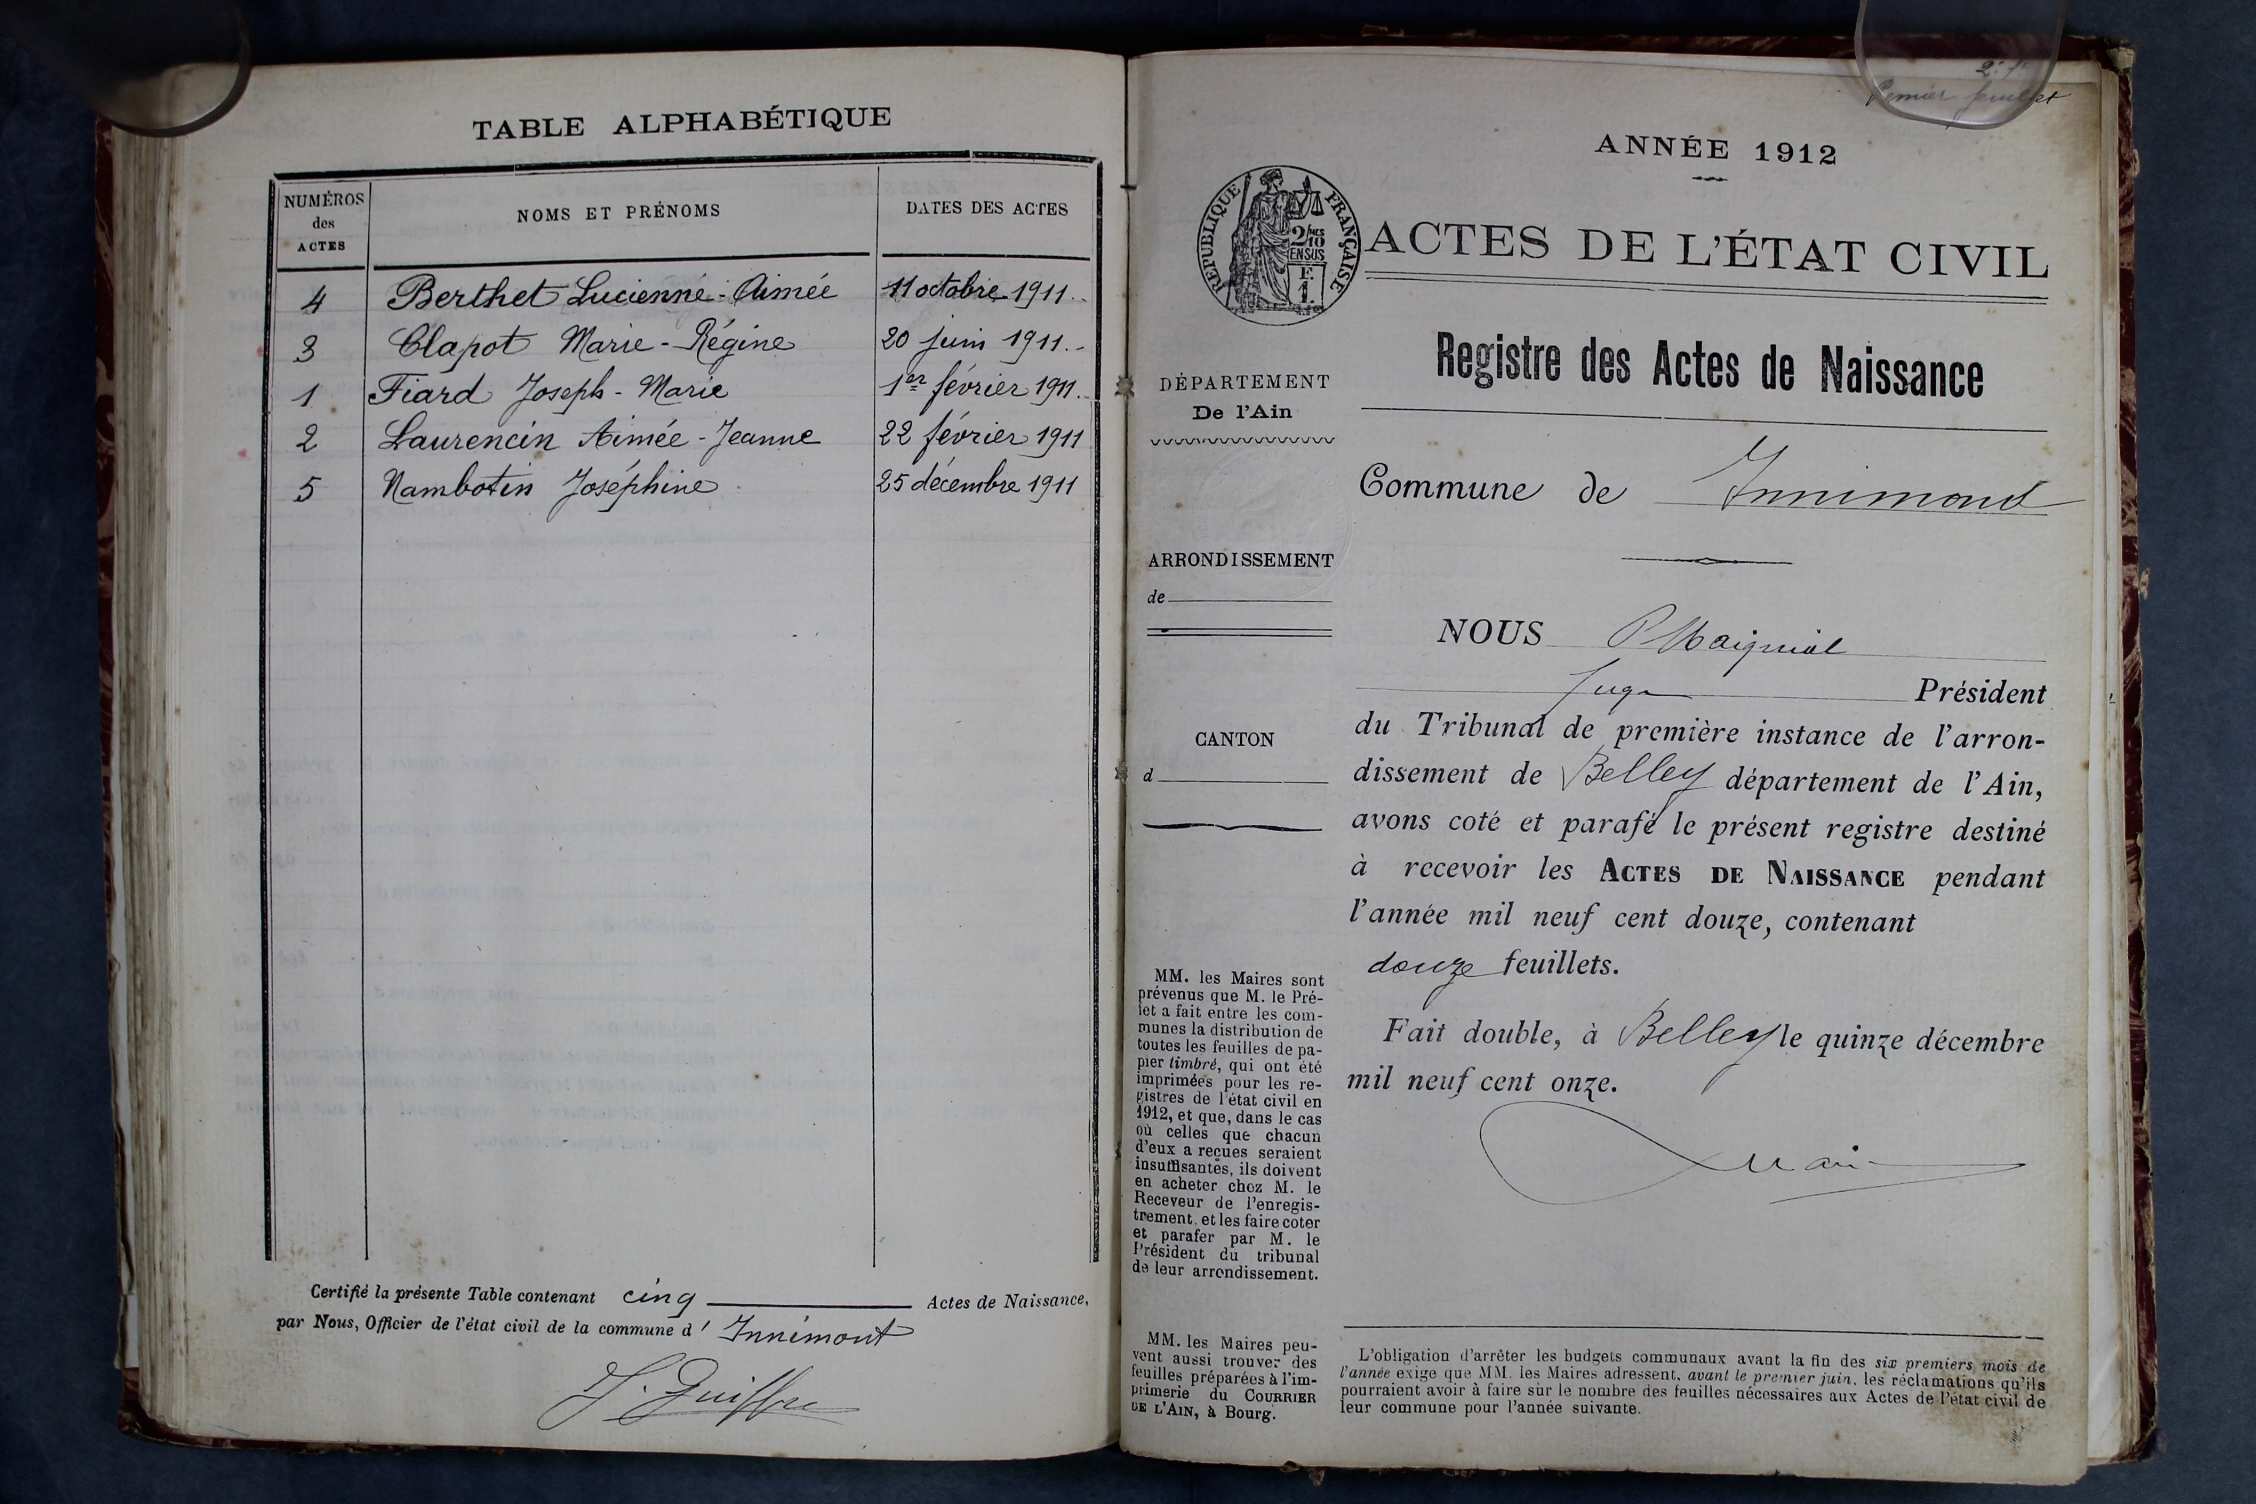 TABLE ALPHABÉTIQUE
NUMÉROS des ACTES
NOMS ET PRÉNOMS
DATES DES ACTES
4 Berthet Lucienne-Aimée 11 octobre 1911.-
3 Clapot Marie-Régine 20 juin 1911.-
1 Fiard Joseph-Marie 1er février 1911.
2 Laurencin Aimée-Jeanne 22 février 1911
5 Nambotin Joséphine 25 décembre 1911
Certifié la présente Table contenant cinq Actes de Naissance,
par Nous, Officier de l'état civil de la commune d' Innimont
Premier feuillet
ANNÉE 1912
RÉPUBLIQUE FRANÇAISE
2/10
EN SUS
F.
1.
ACTES DE L'ÉTAT CIVIL
Registre des Actes de Naissance
DÉPARTEMENT
De l'Ain
Commune de Innimond
ARRONDISSEMENT
de
CANTON
d
NOUS
Juge Président
du Tribunal de première instance de l'arron-
dissement de Belley département de l'Ain,
avons coté et parafé le présent registre destiné
à recevoir les ACTES DE NAISSANCE pendant
l'année mil neuf cent douze, contenant
douze feuillets.
Fait double, à Belley le quinze décembre
mil neuf cent onze.
MM. les Maires sont
prévenus que M. le Pré-
fet a fait entre les com-
munes la distribution de
toutes les feuilles de pa-
pier timbré, qui ont été
imprimées pour les re-
gistres de l'état civil en
1912, et que, dans le cas
où celles que chacun
d'eux a reçues seraient
insuffisantes, ils doivent
en acheter chez M. le
Receveur de l'enregis-
trement, et les faire coter
et parafer par M. le
Président du tribunal
de leur arrondissement.
MM. les Maires peu-
vent aussi trouver des
feuilles préparées à l'im-
primerie du COURRIER
DE L'AIN, à Bourg.
L'obligation d'arrêter les budgets communaux avant la fin des six premiers mois de
l'année exige que MM. les Maires adressent, avant le premier juin, les réclamations qu'ils
pourraient avoir à faire sur le nombre des feuilles nécessaires aux Actes de l'état civil de
leur commune pour l'année suivante.